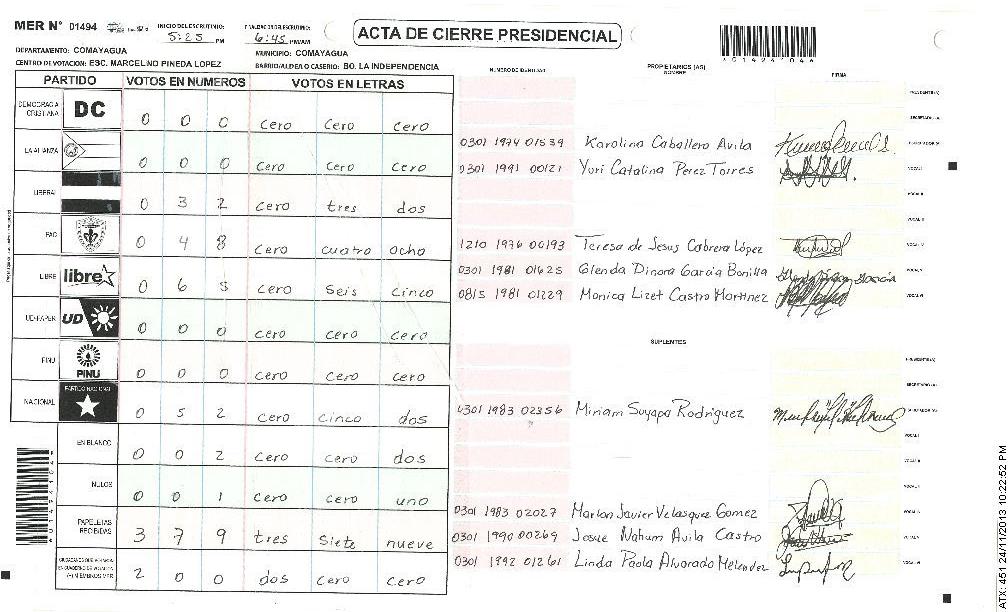 MER N° 01494
INICIO DEL ESCRUTINIO:
5:25 PM
FINALIZACION DEL ESCRUTINIO:
6:45 PM/AM
ACTA DE CIERRE PRESIDENCIAL
DEPARTAMENTO: COMAYAGUA
MUNICIPIO: COMAYAGUA
CENTRO DE VOTACION: ESC. MARCELINO PINEDA LOPEZ
BARRIO/ALDEA O CASERIO: BO. LA INDEPENDENCIA
PARTIDO VOTOS EN NUMEROS VOTOS EN LETRAS
DEMOCRACIA CRISTIANA DC 0 0 0 cero cero cero
LA ALIANZA 0 0 0 cero cero cero
LIBERAL 0 3 2 cero tres dos
PAC 0 4 8 cero cuatro ocho
LIBRE libre 0 6 5 cero seis cinco
UD-FAPER UD 0 0 0 cero cero cero
PINU PINU 0 0 0 cero cero cero
NACIONAL PARTIDO NACIONAL 0 5 2 cero cinco dos
EN BLANCO 0 0 2 cero cero dos
NULOS 0 0 1 cero cero uno
PAPELETAS RECIBIDAS 3 7 9 tres siete nueve
2 0 0 dos cero cero
NUMERO DE IDENTIDAD PROPIETARIOS (AS) NOMBRE FIRMA
0301 1974 01539 Karolina Caballero Avila
0301 1991 00121 Yuri Catalina Perez Torres
1210 1976 00193 Teresa de Jesus Cabrera López
0301 1981 01625 Glenda Dinora Garcia Bonilla
0815 1981 01229 Monica Lizet Castro Martinez
SUPLENTES
0301 1983 02356 Miriam Suyapa Rodriguez
0301 1983 02027 Marlon Javier Velasquez Gomez
0301 1990 00269 Josue Nahum Avila Castro
0301 1992 01261 Linda Paola Alvarado Melendez
ATX: 451 24/11/2013 10:22:52 PM